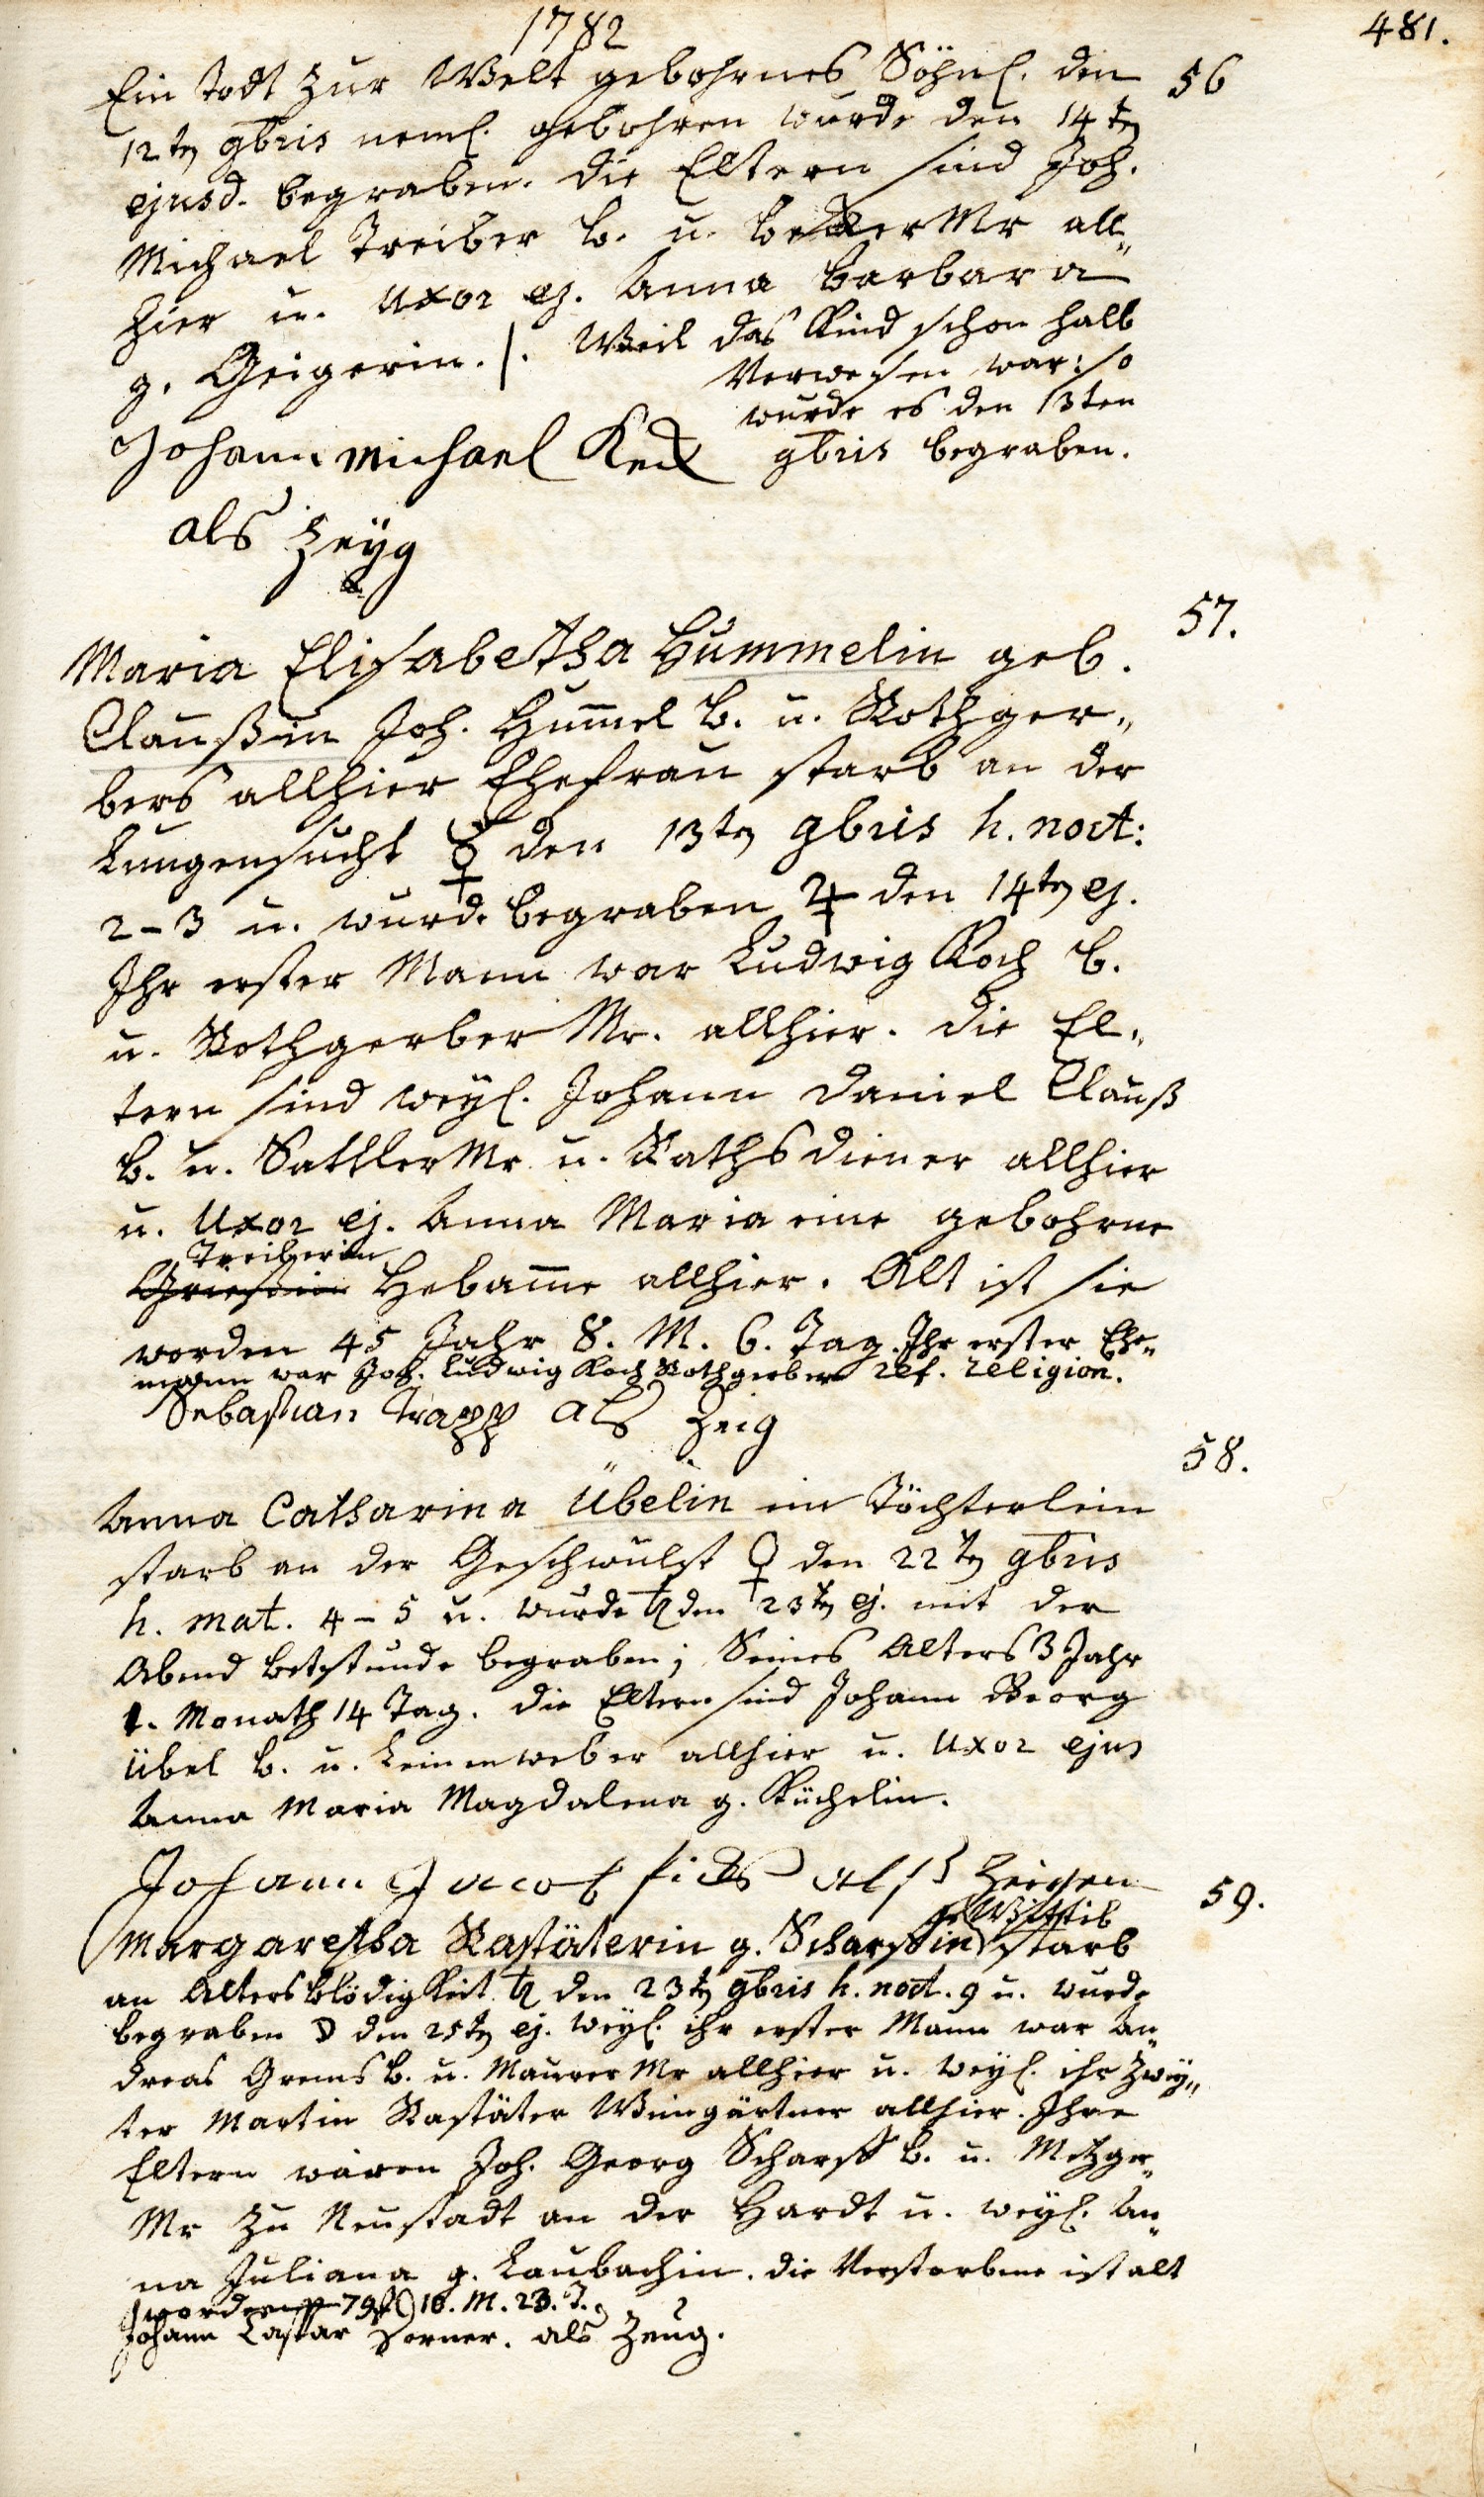 1782
481.
56
Ein todt zur Welt gebohrnes Söhnl. den
12tn 9bris neml. gebohren wurde den 14tn
ejusd. begraben. die Eltern sind Joh.
Michael Treiber b. u. Becker Mr all„
hier u. Uxor ej. Anna Barbara
g. Geigerin. /. Weil das Kind schon halb
Verwesen war: so
wurde es den 13ten
9bris begraben.
Johann Michael Keck
als Zeüg
57.
Maria Elisabetha Hummelin geb.
Claußin Joh. Hum̄el b. u. Rothger„
bers allhier Ehefrau starb an der
Lungensucht ☿ den 13tn 9bris h. noct:
2–3 u. wurde begraben ♃ den 14tn ej.
Ihr erster Mann war Ludwig Koch b.
u. Rothgerber Mr. allhier. die El„
tern sind weyl. Johann Daniel Clauß
b. u. Sattler Mr u. Rathsdiener allhier
u. Uxor ej. Anna Maria eine gebohrne
Treiberin
Hebam̄e allhier. Alt ist sie
worden 45 Jahr 8. M. 6. Tag. Ihr erster Ehe„
mann war Joh. Ludwig Koch Rothgerber ref. religion.
Sebastian Trapp als Zeig
58.
Anna Catharina Übelin ein Töchterlein
starb an der Geschwulst ♀ den 22tn 9bris
h. mat. 4–5 u. wurde ♄ den 23tn ej. mit der
Abend betstunde begraben; Seines Alters 3 Jahr
1. Monath 14 Tag. die Eltern sind Johann Georg
Übel b. u. Leinenweber allhier u. Uxor ejus
Anna Maria Magdalena g. Küchelin.
Johann Jacob als Zeigen
59.
Wittib
Margaretha Rastäterin g. Scharffin starb
an Altersblödigkeit ♄ den 23tn 9bris h. noct. 9 u. wurde
begraben ☽ den 25tn ej. weyl. ihr erster Mann war An„
dreas Grems b. u. Maurer Mr allhier u. weyl. ihr zwey„
ter Martin Rastäter Weingärtner allhier. Ihre
Eltern waren Joh. Georg Scharff b. u. Metzger„
Mr zu Neustadt an der Hardt u. weyl. An„
na Juliana g. Laubachin. die Verstorbene ist alt
worden 79 J. 10. M. 23. T.
Johann Casper Dorner. als Zeug.